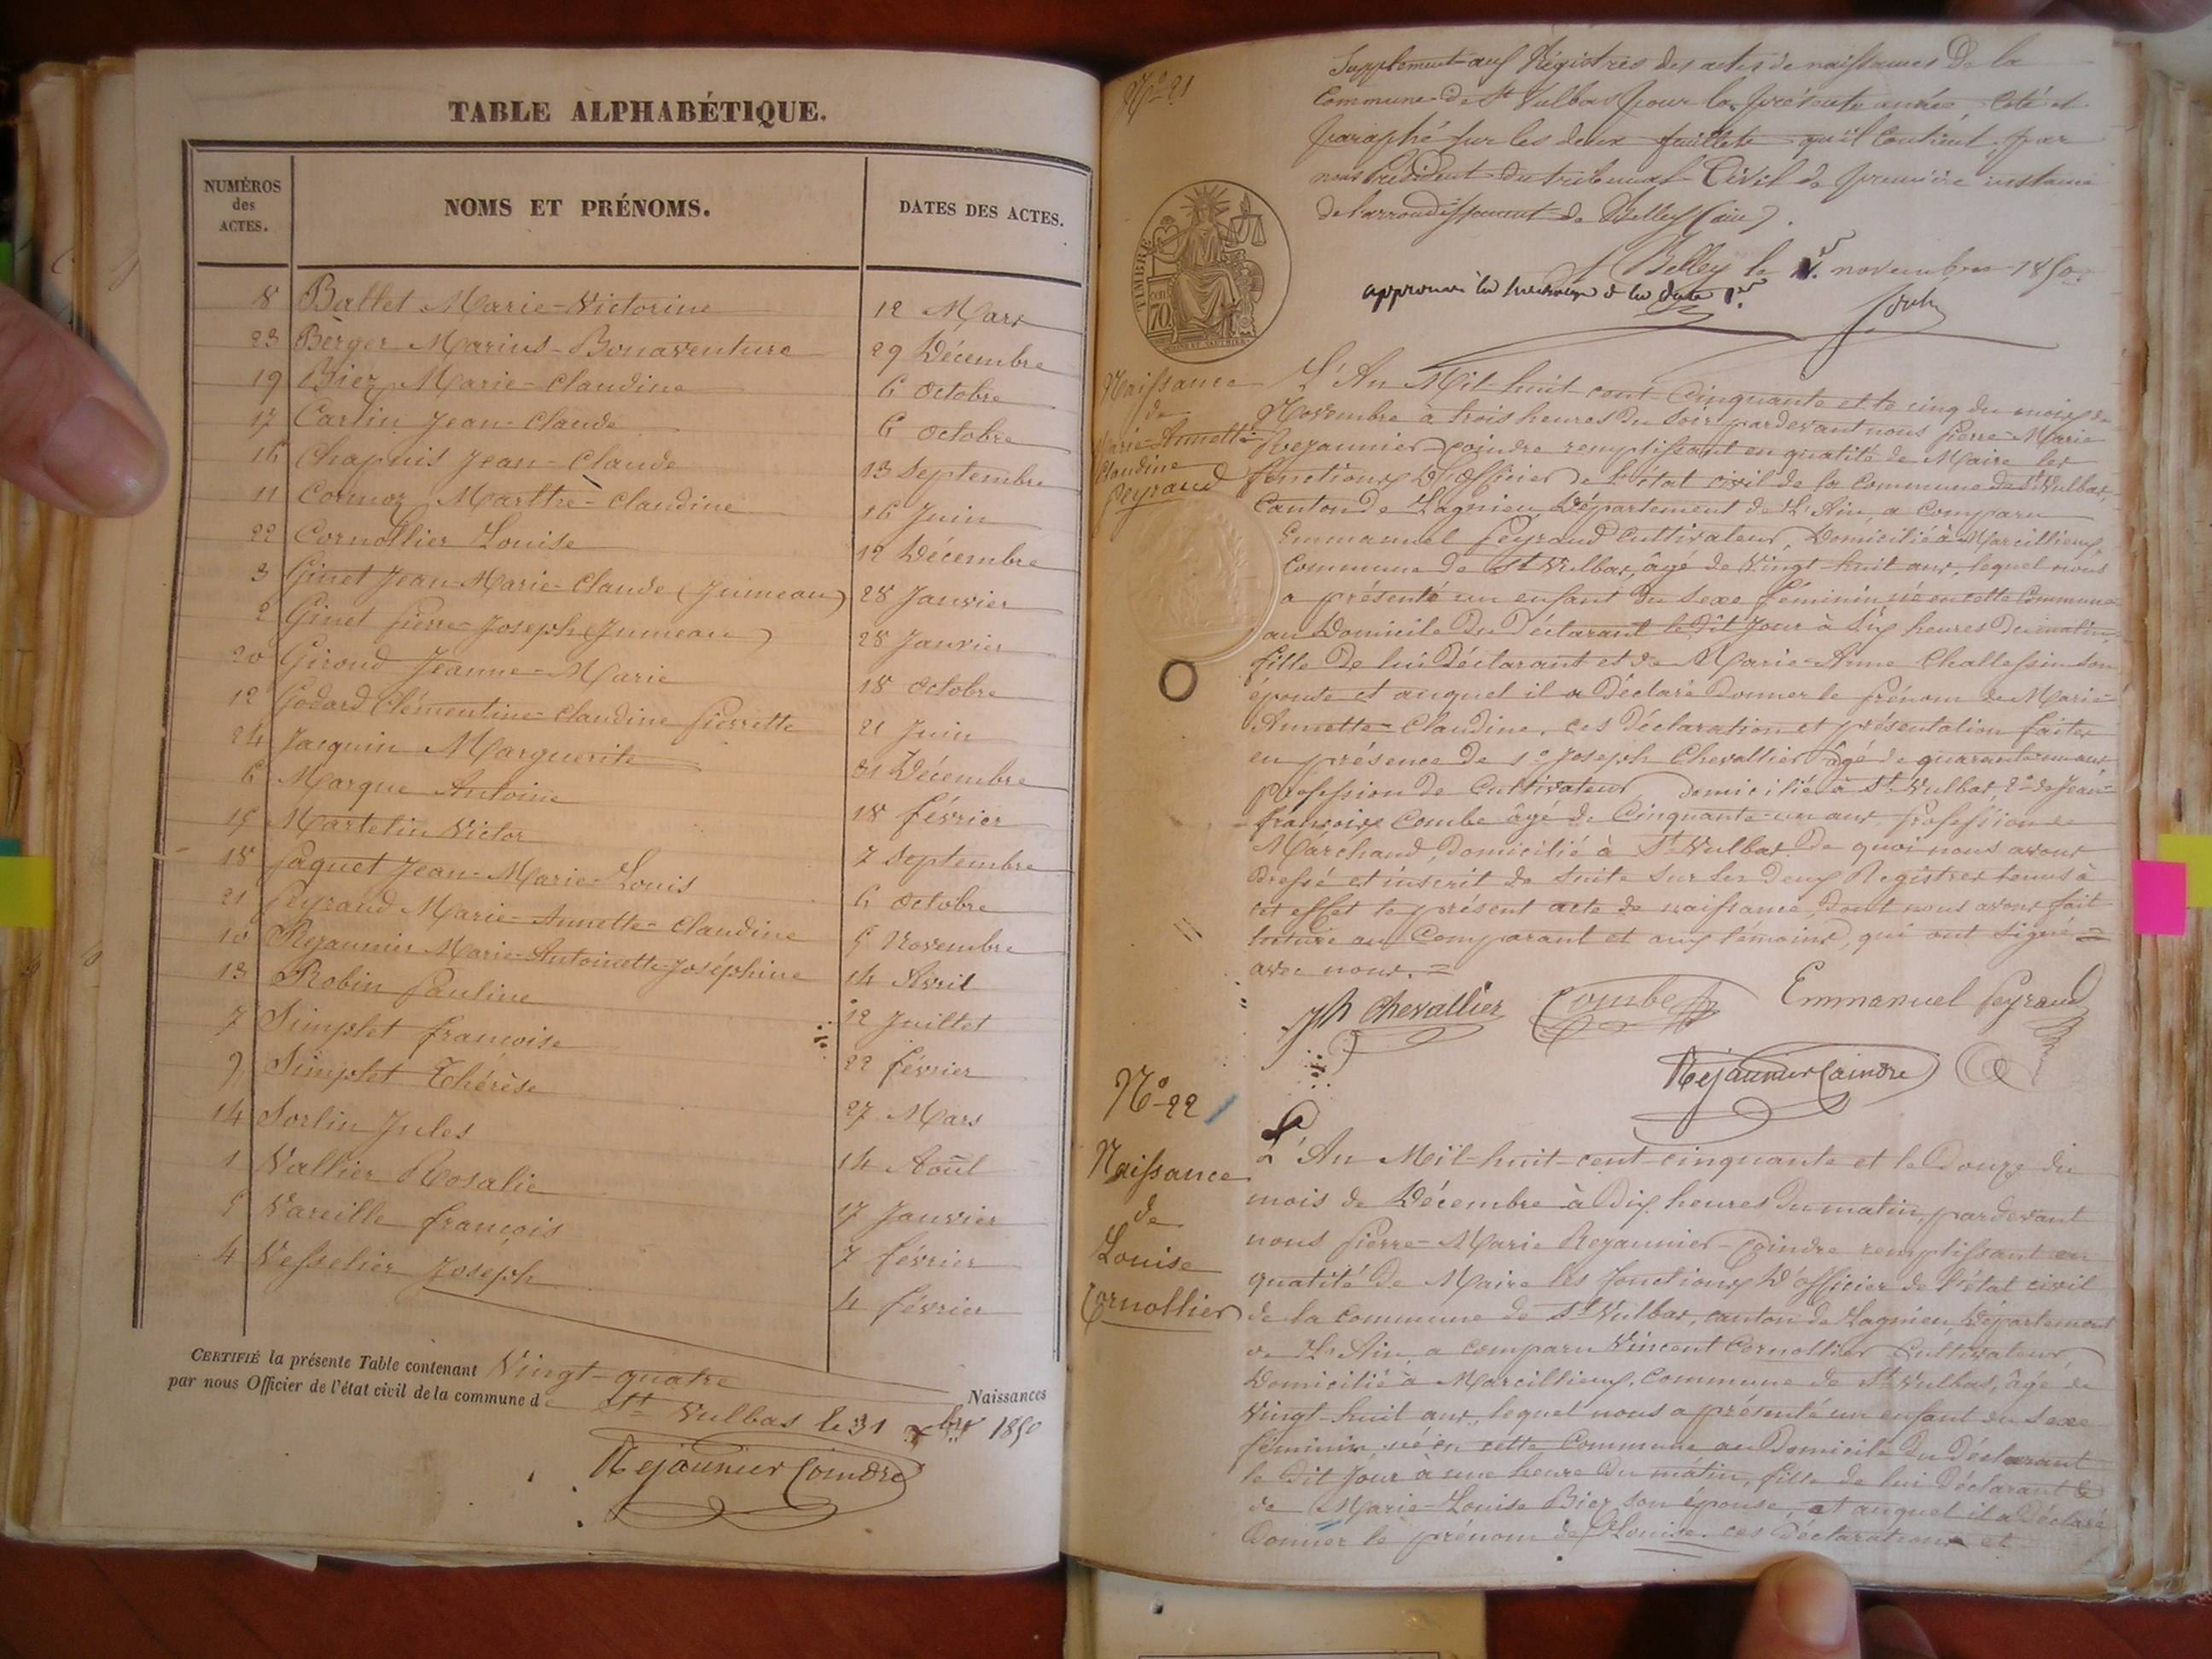 TABLE ALPHABÉTIQUE.
NUMÉROS des ACTES. NOMS ET PRÉNOMS. DATES DES ACTES.
8 Ballet Marie-Victorine 12 Mars
23 Berger Marius-Bonaventure 29 Décembre
19 Biez Marie-Claudine 6 Octobre
17 Carlin Jean-Claude 6 Octobre
16 Chapuis Jean-Claude 13 Septembre
11 Cormoz Marthe-Claudine 16 Juin
22 Cornollier Louise 12 Décembre
3 Ginet Jean-Marie-Claude (Jumeau) 28 Janvier
2 Ginet Pierre-Joseph (Jumeau) 28 Janvier
20 Giroud Jeanne-Marie 18 Octobre
12 Godard Clémentine-Claudine Pierrette 21 Juin
24 Jacquin Marguerite 31 Décembre
6 Marque Antoine 18 février
15 Martelin Victor 7 Septembre
18 Paquet Jean-Marie-Louis 6 Octobre
21 Peyraud Marie-Annette-Claudine 5 Novembre
10 Rejaunier Marie-Antoinette-Joséphine 14 Avril
13 Robin Pauline 12 Juillet
7 Simplet françoise 22 février
9 Simplet Thérèse 27 Mars
14 Sorlin Jules 14 Août
1 Vallier Rosalie 17 Janvier
5 Vareille françois 7 février
4 Vesselier Joseph 4 février
CERTIFIÉ la présente Table contenant Vingt-quatre Naissances
par nous Officier de l'état civil de la commune de St Vulbas le 31 xbre 1850
Rejaunier Coindre
N° 21
Supplément aux Régistres des actes de naissances de la
Commune de St Vulbas pour la présente année, coté et
paraphé sur les deux feuillets qu'il contient, par
nous Président du tribunal Civil de première instance
de l'arrondissement de Belley (ain).
Belley le 1er novembre 1850.
approuvé la surcharge de la date 1er.
TIMBRE
70
Naissance
de
Marie-Annette
Claudine
Peyraud
L'An Mil-huit-cent-Cinquante et le cinq du mois de
Novembre à trois heures du Soir pardevant nous Pierre-Marie
Rejaunier-Coindre remplissant en qualité de Maire les
fonctions D'Officier de l'état civil de la Commune de St Vulbas,
Canton de Lagnieu, Département de L'Ain, a Comparu
Emmanuel Peyraud Cultivateur, Domicilié à Marcillieux,
Commune de St Vulbas, âgé de Vingt-huit ans, lequel nous
a présenté un enfant du Sexe féminin, né en cette Commune
au Domicile du Déclarant le dit Jour à Six heures du matin,
fille de lui Déclarant et de Marie-Anne Challessin son
épouse et auquel il a Déclaré Donner le Prénom de Marie-
Annette-Claudine, ces Déclaration et présentation faites
en présence de 1° Joseph Chevallier âgé de quarante-un ans
Profession de Cultivateur, domicilié à St Vulbas 2° de Jean-
françois Combe âgé de Cinquante-un ans Profession de
Marchand, Domicilié à St Vulbas. De quoi nous avons
Dressé et inscrit de Suite sur les Deux Registres tenus à
cet effet le présent acte de naissance, Dont nous avons fait
lecture au Comparant et aux témoins, qui ont signé
avec nous. =
Jh Chevallier Combe Emmanuel Peyraud
Rejaunier Coindre
N° 22
Naissance
de
Louise
Cornollier
L'An Mil-huit-cent-cinquante et le Douze du
mois de Décembre à Dix heures du matin, pardevant
nous Pierre-Marie Rejaunier-Coindre remplissant en
qualité de Maire les fonctions D'officier de l'état civil
de la commune de St Vulbas, canton de Lagnieu, Département
de L'Ain, a comparu Vincent Cornollier Cultivateur,
Domicilié à Marcillieux, Commune de St Vulbas, âgé de
Vingt-huit ans, lequel nous a présenté un enfant du Sexe
féminin, né en cette Commune au Domicile du Déclarant
le Dit Jour à une heure du matin, fille de lui Déclarant &
de Marie-Louise Biez son épouse, et auquel il a Déclaré
Donner le prénom de Louise. ces Déclaration et